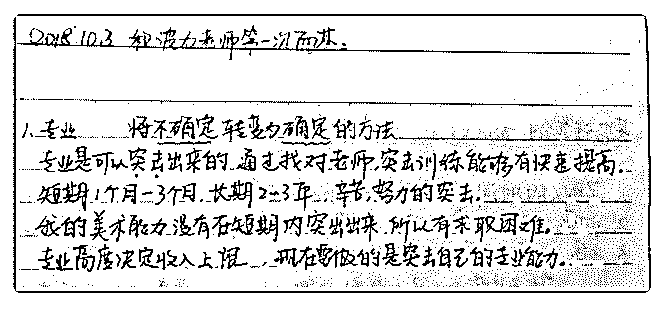 2018.10.3 和波力老师第一次面谈.
1. 专业 将不确定转变为确定的方法
专业是可以突击出来的.通过找对老师,突击训练能够有快速提高.
短期1个月-3个月,长期2-3年,辛苦,努力的突击.
我的美术能力没有在短期内突出出来,所以有求职困难.
专业高度决定收入上限,现在要做的是突击自己的专业能力.